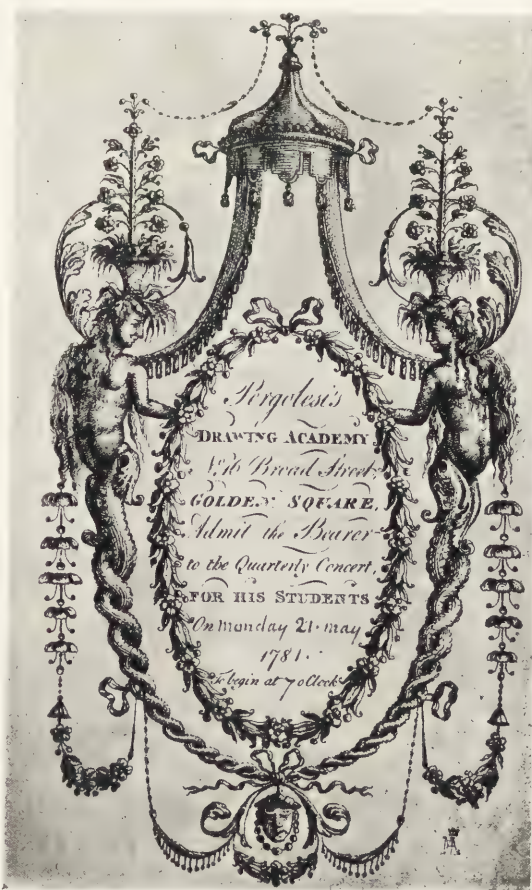 Pergolesi's
DRAWING ACADEMY
Broad Street,
GOLDEN SQUARE,
Admit the Bearer
to the Quarterly Concert,
FOR HIS STUDENTS
On monday 21. may
1781.
To begin at 7 oClock